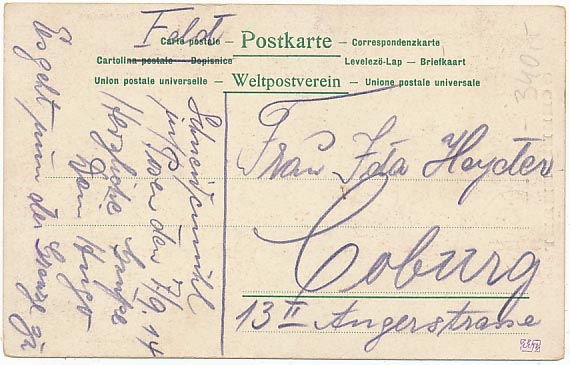 Feldt
Carte postale — Postkarte — Correspondenzkarte
Cartolina postale — Dopisnice Levelező-Lap — Briefkaart
Union postale universelle — Weltpostverein — Unione postale universale
Schneidemühl
in Posen den 7/9. 14
Herzliche Grüße
Dein Hugo
Es geht nun der Grenze zu
Frau Ida Heyder
Coburg
13 II Angerstrasse